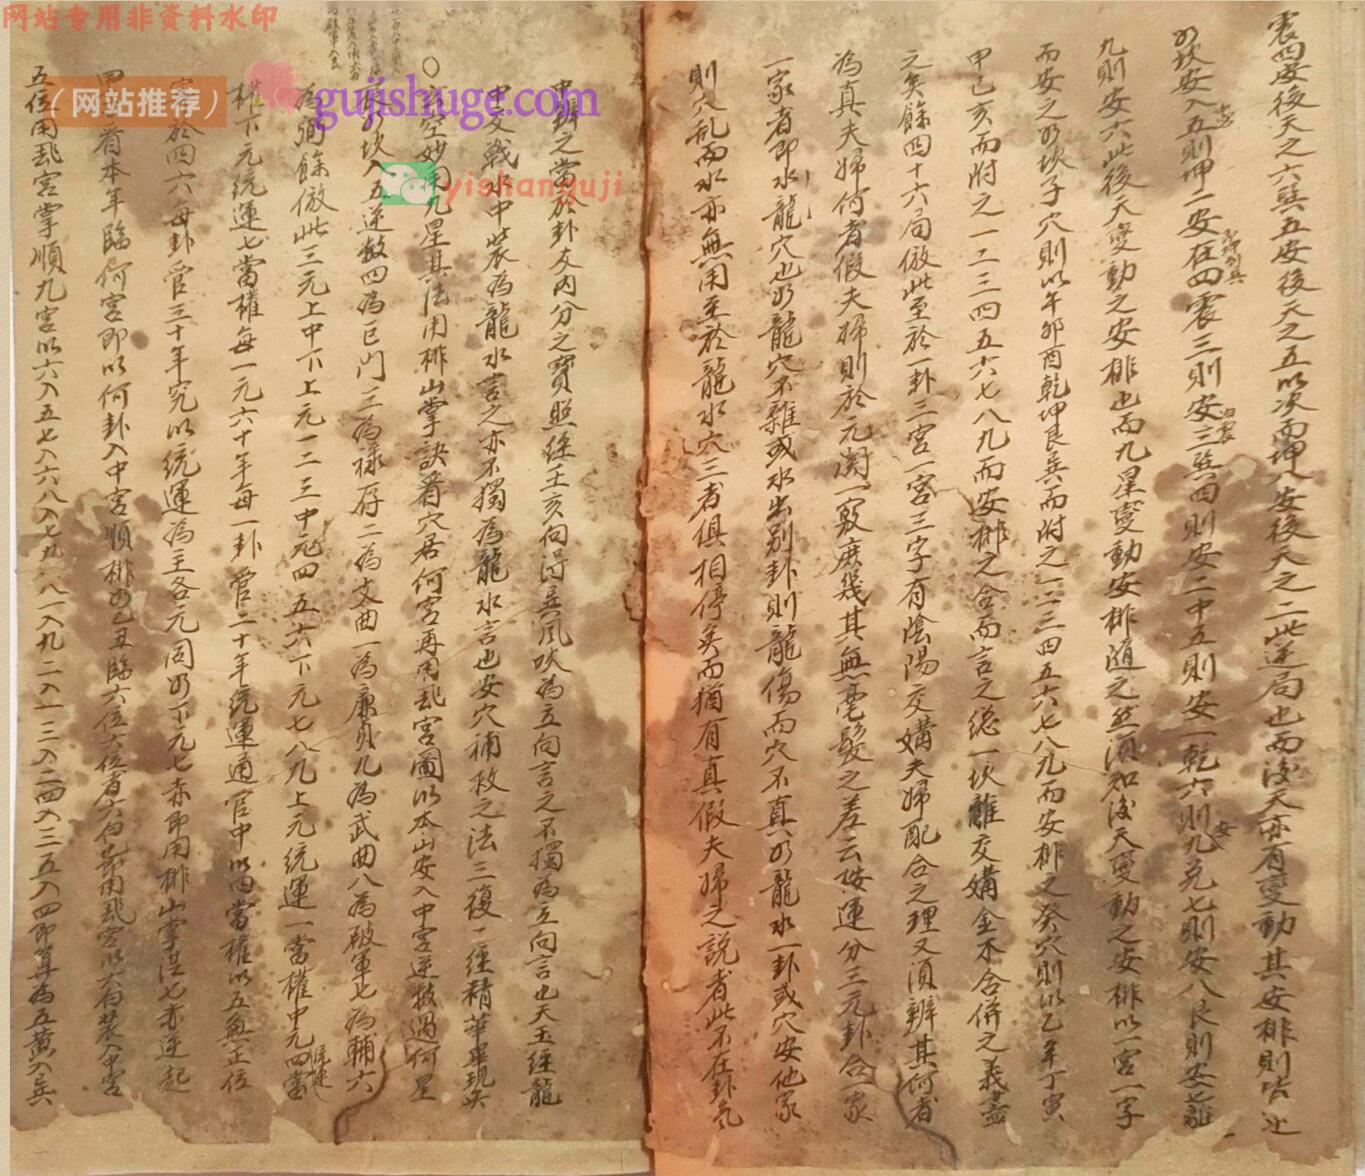 网站专用非资料水印
（网站推荐）
gujishuge.com
yishanguji
震四安後天之六巽五安後天之五以次而坤八安後天之二此逆局也而後天亦有變動其安排則皆
如坎安入五則坤二安在四震三則安三巽四則安二中五則安一乾六則九兌七則安八艮則安七離
九則安六此後天變動之安排也而九星變動安排隨之然須知後天變動之安排以一宮一字
而安之如坎子穴則以午卯酉乾坤艮巽而附之一二三四五六七八九而安排之癸穴則以乙辛丁寅
甲己亥而附之一二三四五六七八九而安排之合而言之總一坎離交媾金木合併之義盡
之矣餘四十六局倣此至於一卦三宮一宮三字有陰陽交媾夫婦配合之理又須辨其何者
為真夫婦何者假夫婦則於元関一竅庶幾其無毫髮之差云故運分三元卦合一家
一家者即水龍穴也如龍穴不雜或水出别卦則龍傷而穴不真如龍水一卦或穴安他家
則穴乱而水亦無用至於龍水穴三者俱相停矣而猶有真假夫婦之說者此不在卦氣
中辨之當於卦爻内分之寶照經壬亥向得巽風吹為立向言之不獨為立向言也天玉經龍
中交戰水中裝為龍水言之亦不獨為龍水言也安穴補救之法三復一經精華畢現矣
○ 空妙用九星其法用排山掌訣看穴居何宮再用飛宮圖以本山安入中宮逆数過何星
如坎入五逆数四為巨門三為禄存二為文曲一為廉貞九為武曲八為破軍七為輔六
為弼餘倣此三元上中下上元一二三中元四五六下元七八九上元統運一當權中元四當
權下元統運七當權每一元六十年每一卦管二十年統運通管中以四當權以五無正位
寄於四六每卦管三十年究以統運為主各元同如下元七赤即用排山掌法七赤逆起
四五看本年臨何宮即以何卦入中宮順排如乙丑臨六位六位看六白也用飛宮以六白裝入中宮
五位用飛宮掌順九宮以六入五七入六八入七九入八一入九二入一三入二四入三五入四即算為五黄入巽